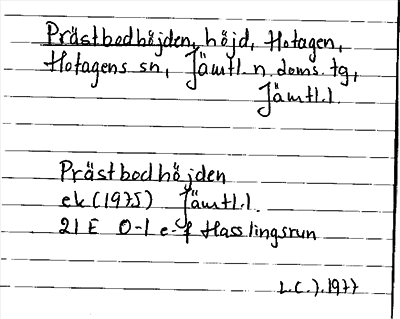 Prästbodhöjden, höjd, Hotagen,
Hotagens sn, Jämtl. n. doms. tg,
Jämtl.l.
Prästbodhöjden
ek (1975) Jämtl.l.
21 E 0-1 e-f Hasslingsrun
L.C.J. 1977